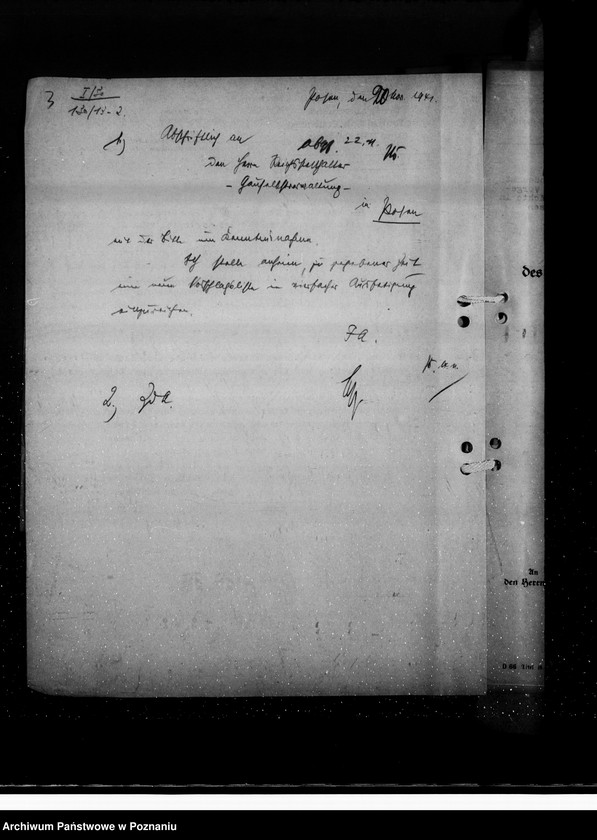 3
I/50
130/13-2.
Posen, den 20 Nov. 1941.
b) Abschriftlich an
abg. 22.11.
den Herrn Reichsstatthalter
- Gauselbstverwaltung -
in Posen
mit der Bitte um Kenntnisnahme.
Ich stelle anheim, zu gegebener Zeit
eine neue Vorschlagsliste in vierfacher Ausfertigung
einzureichen.
I A.
2) ZdA.
des
An
den Herrn
Archiwum Państwowe w Poznaniu